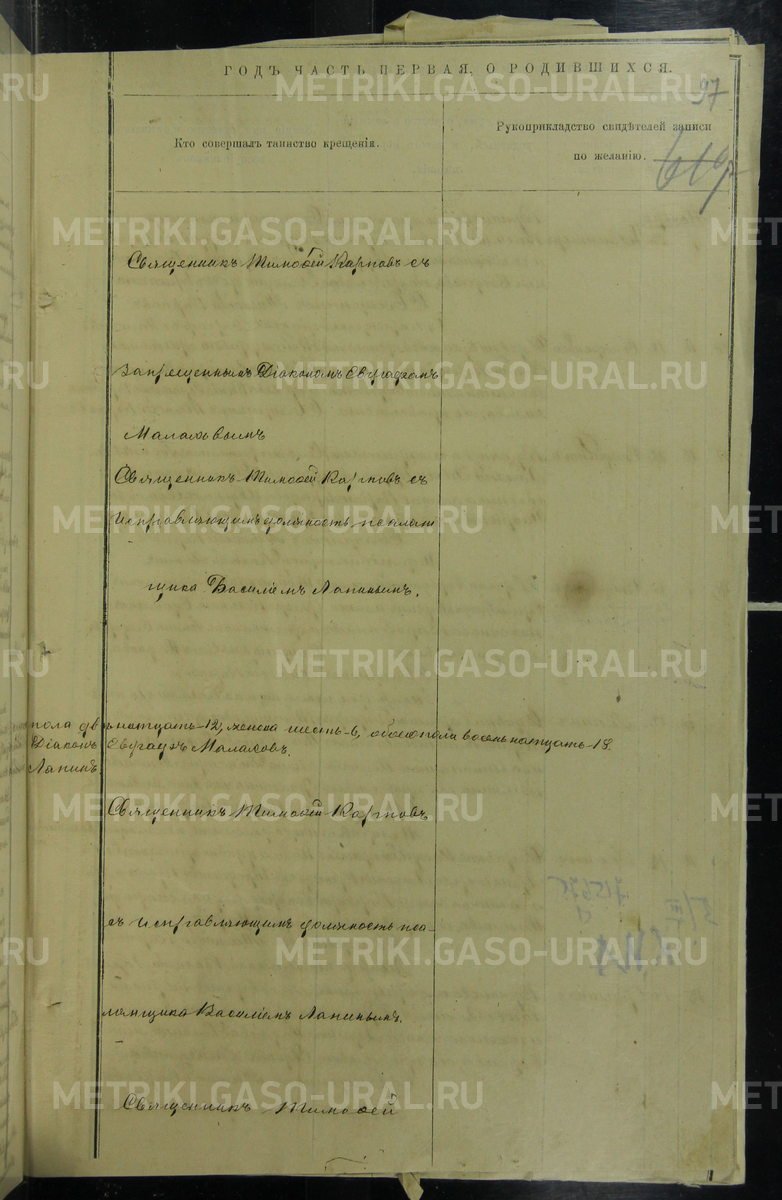 ГОДЪ ЧАСТЬ ПЕРВАЯ, О РОДИВШИХСЯ.
97
Кто совершалъ таинство крещенія.
Рукоприкладство свидѣтелей записи
по желанію.
619
METRIKI.GASO-URAL.RU
Священникъ Тимоѳей Карповъ съ
запрещеннымъ Діакономъ Евграфомъ
Малаховымъ
Священникъ Тимоѳей Карповъ съ
Исправляющимъ должность псалом
щика Василіемъ Лапинымъ.
пола двѣнатцать-12, женска шесть-6, обоего пола восемьнатцать-18.
Діаконъ Евграфъ Малаховъ.
Лапинъ.
Священникъ Тимоѳей Карповъ
съ Исправляющимъ должность пса-
ломщика Василіемъ Лапинымъ.
Священникъ Тимоѳей